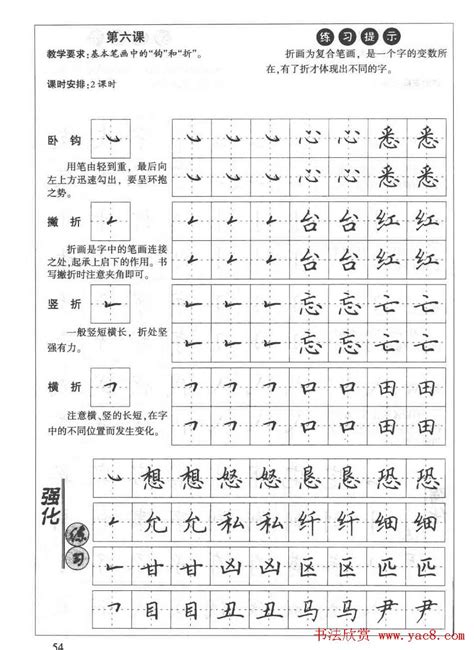 第六课
教学要求:基本笔画中的“钩”和“折”。
课时安排:2课时
练习提示
折画为复合笔画，是一个字的变数所
在,有了折才体现出不同的字。
卧钩
心 心 悉 悉
心 心 悉 悉
用笔由轻到重，最后向
左上方迅速勾出，要呈环抱
之势。
撇折
台 台 红 红
台 台 红 红
折画是字中的笔画连接
之处,起承上启下的作用。书
写撇折时注意夹角即可。
竖折
忘 忘 亡 亡
忘 忘 亡 亡
一般竖短横长，折处坚
强有力。
横折
口 口 田 田
口 口 田 田
注意横、竖的长短,在字
中的不同位置而发生变化。
强化练习
想 想 怒 怒 恳 恳 恐 恐
允 允 私 私 纤 纤 细 细
甘 甘 凶 凶 区 区 匹 匹
目 目 丑 丑 马 马 尹 尹
书法欣赏 www.yac8.com
54